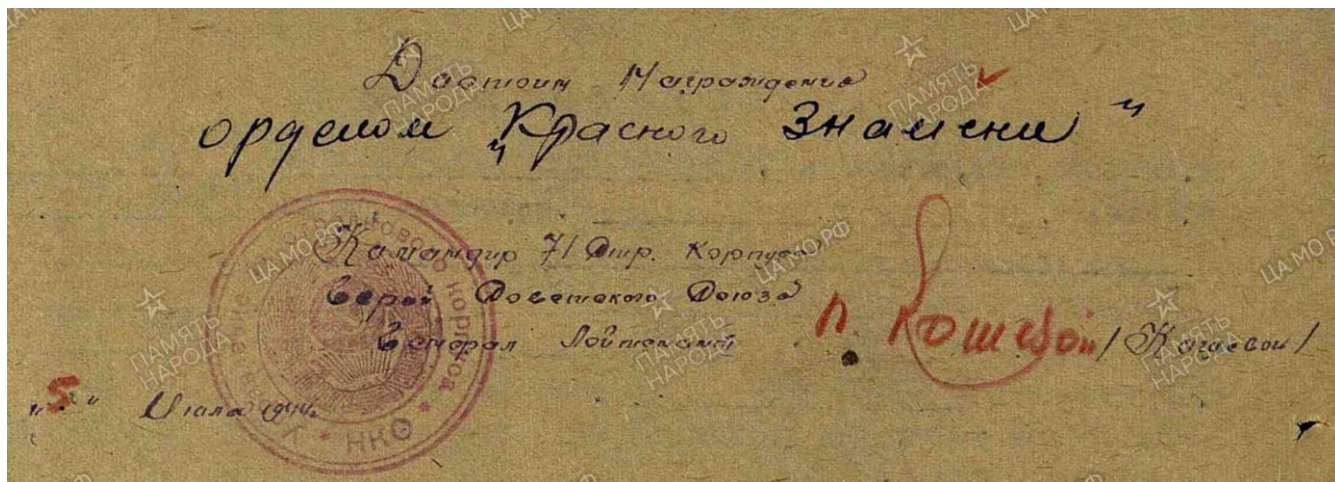 Достоин Награждения
орденом „Красного Знамени"
Командир 71 Стр. Корпуса
Герой Советского Союза
Генерал Лейтенант П. Кошевой /Кошевой/
"5" Июля 1944г.
Управление стрелкового корпуса * НКО *
ПАМЯТЬ НАРОДА
ЦАМО.РФ